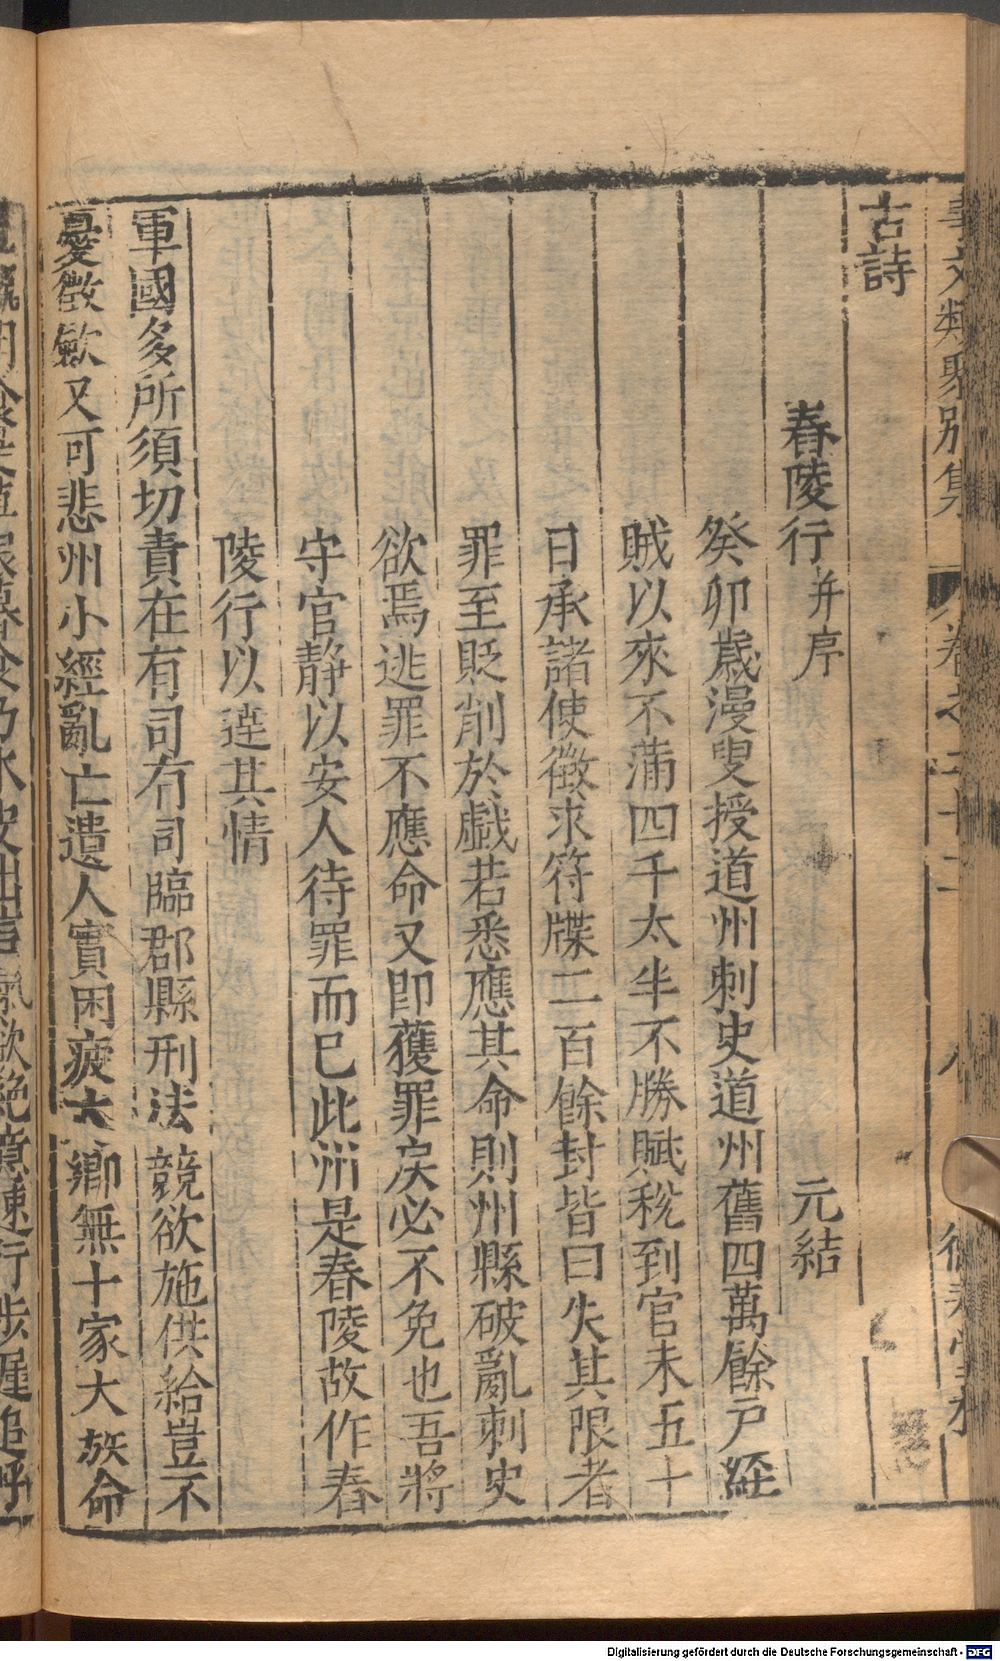 古詩
春陵行并序 元結
癸卯歲漫叟授道州刺史道州舊四萬餘戶經
賊以來不滿四千太半不勝賦稅到官未五十
日承諸使徵求符牒二百餘封皆曰失其限者
罪至貶削於戲若悉應其命則州縣破亂刺史
欲焉逃罪不應命又即獲罪戾必不免也吾將
守官靜以安人待罪而已此州是春陵故作春
陵行以達其情
軍國多所須切責在有司有司臨郡縣刑法競欲施供給豈不
憂徵歛又可悲州小經亂亡遺人實困疲大鄉無十家大族命
Digitalisierung gefördert durch die Deutsche Forschungsgemeinschaft - DFG